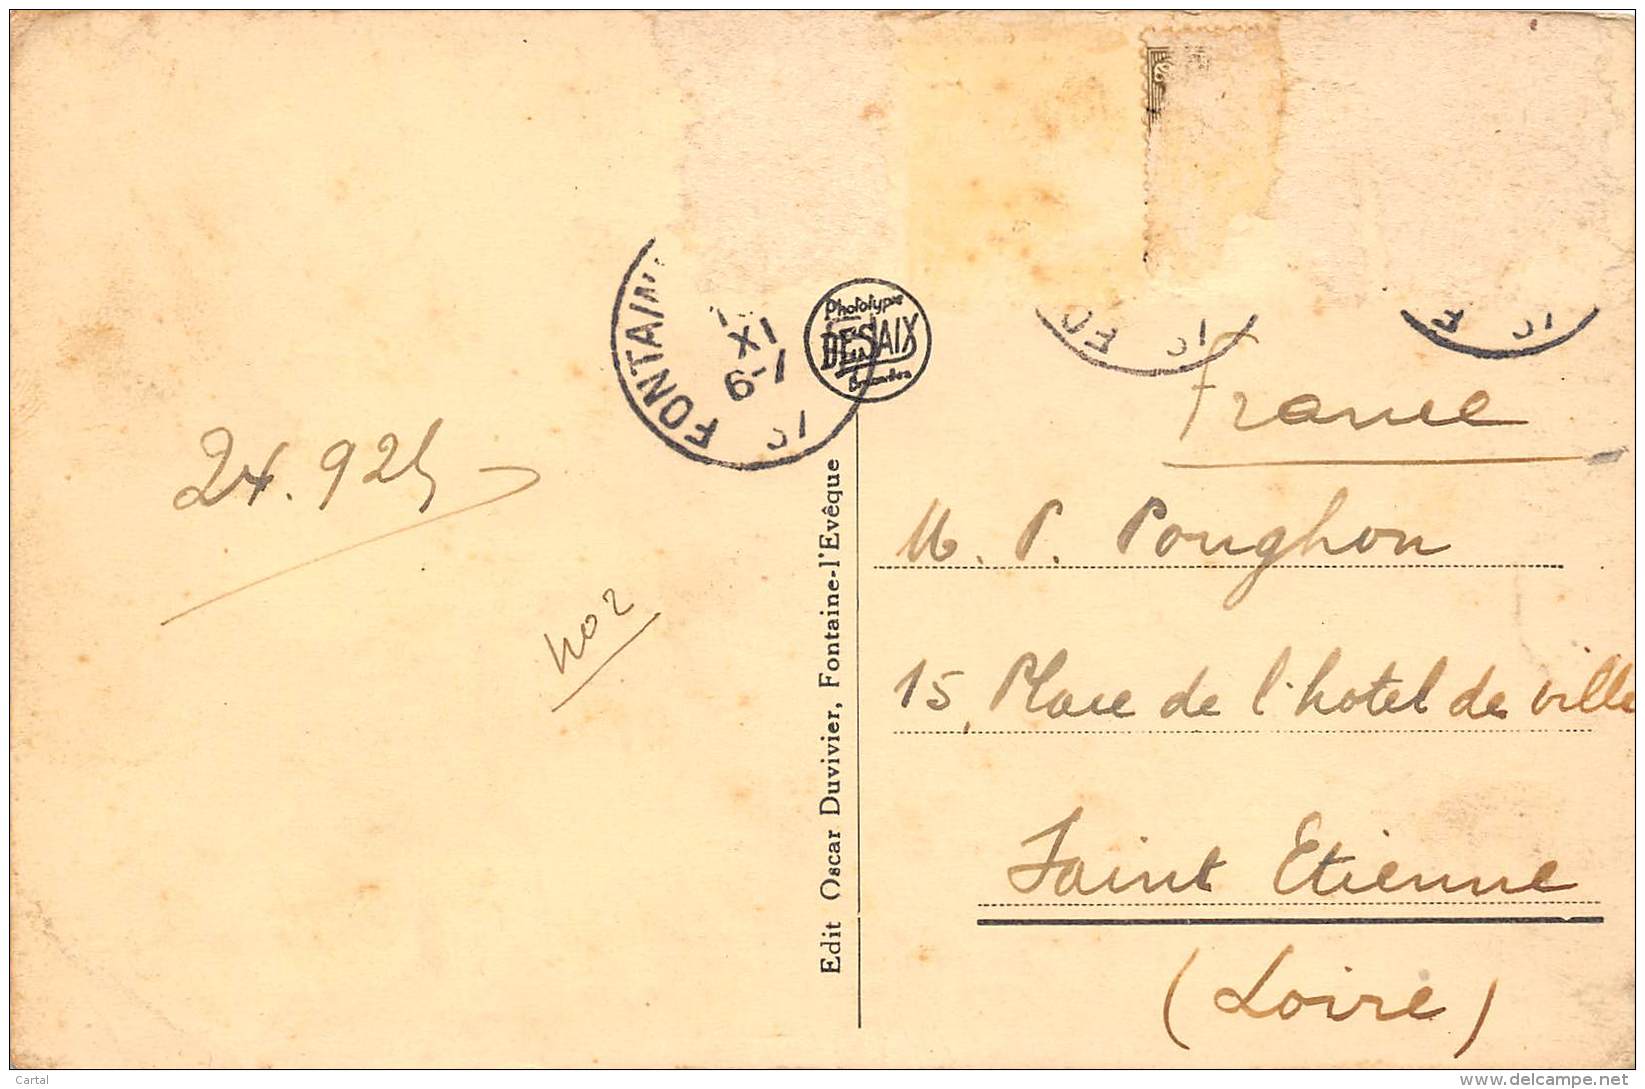 FONTAIN
XI
6-7
Phototypie
DESAIX
Bruxelles
Edit Oscar Duvivier, Fontaine-l'Evêque
402
France
M. P. Poughon
15, Place de l'hotel de ville
Saint Etienne
(Loire)
Cartal
www.delcampe.net